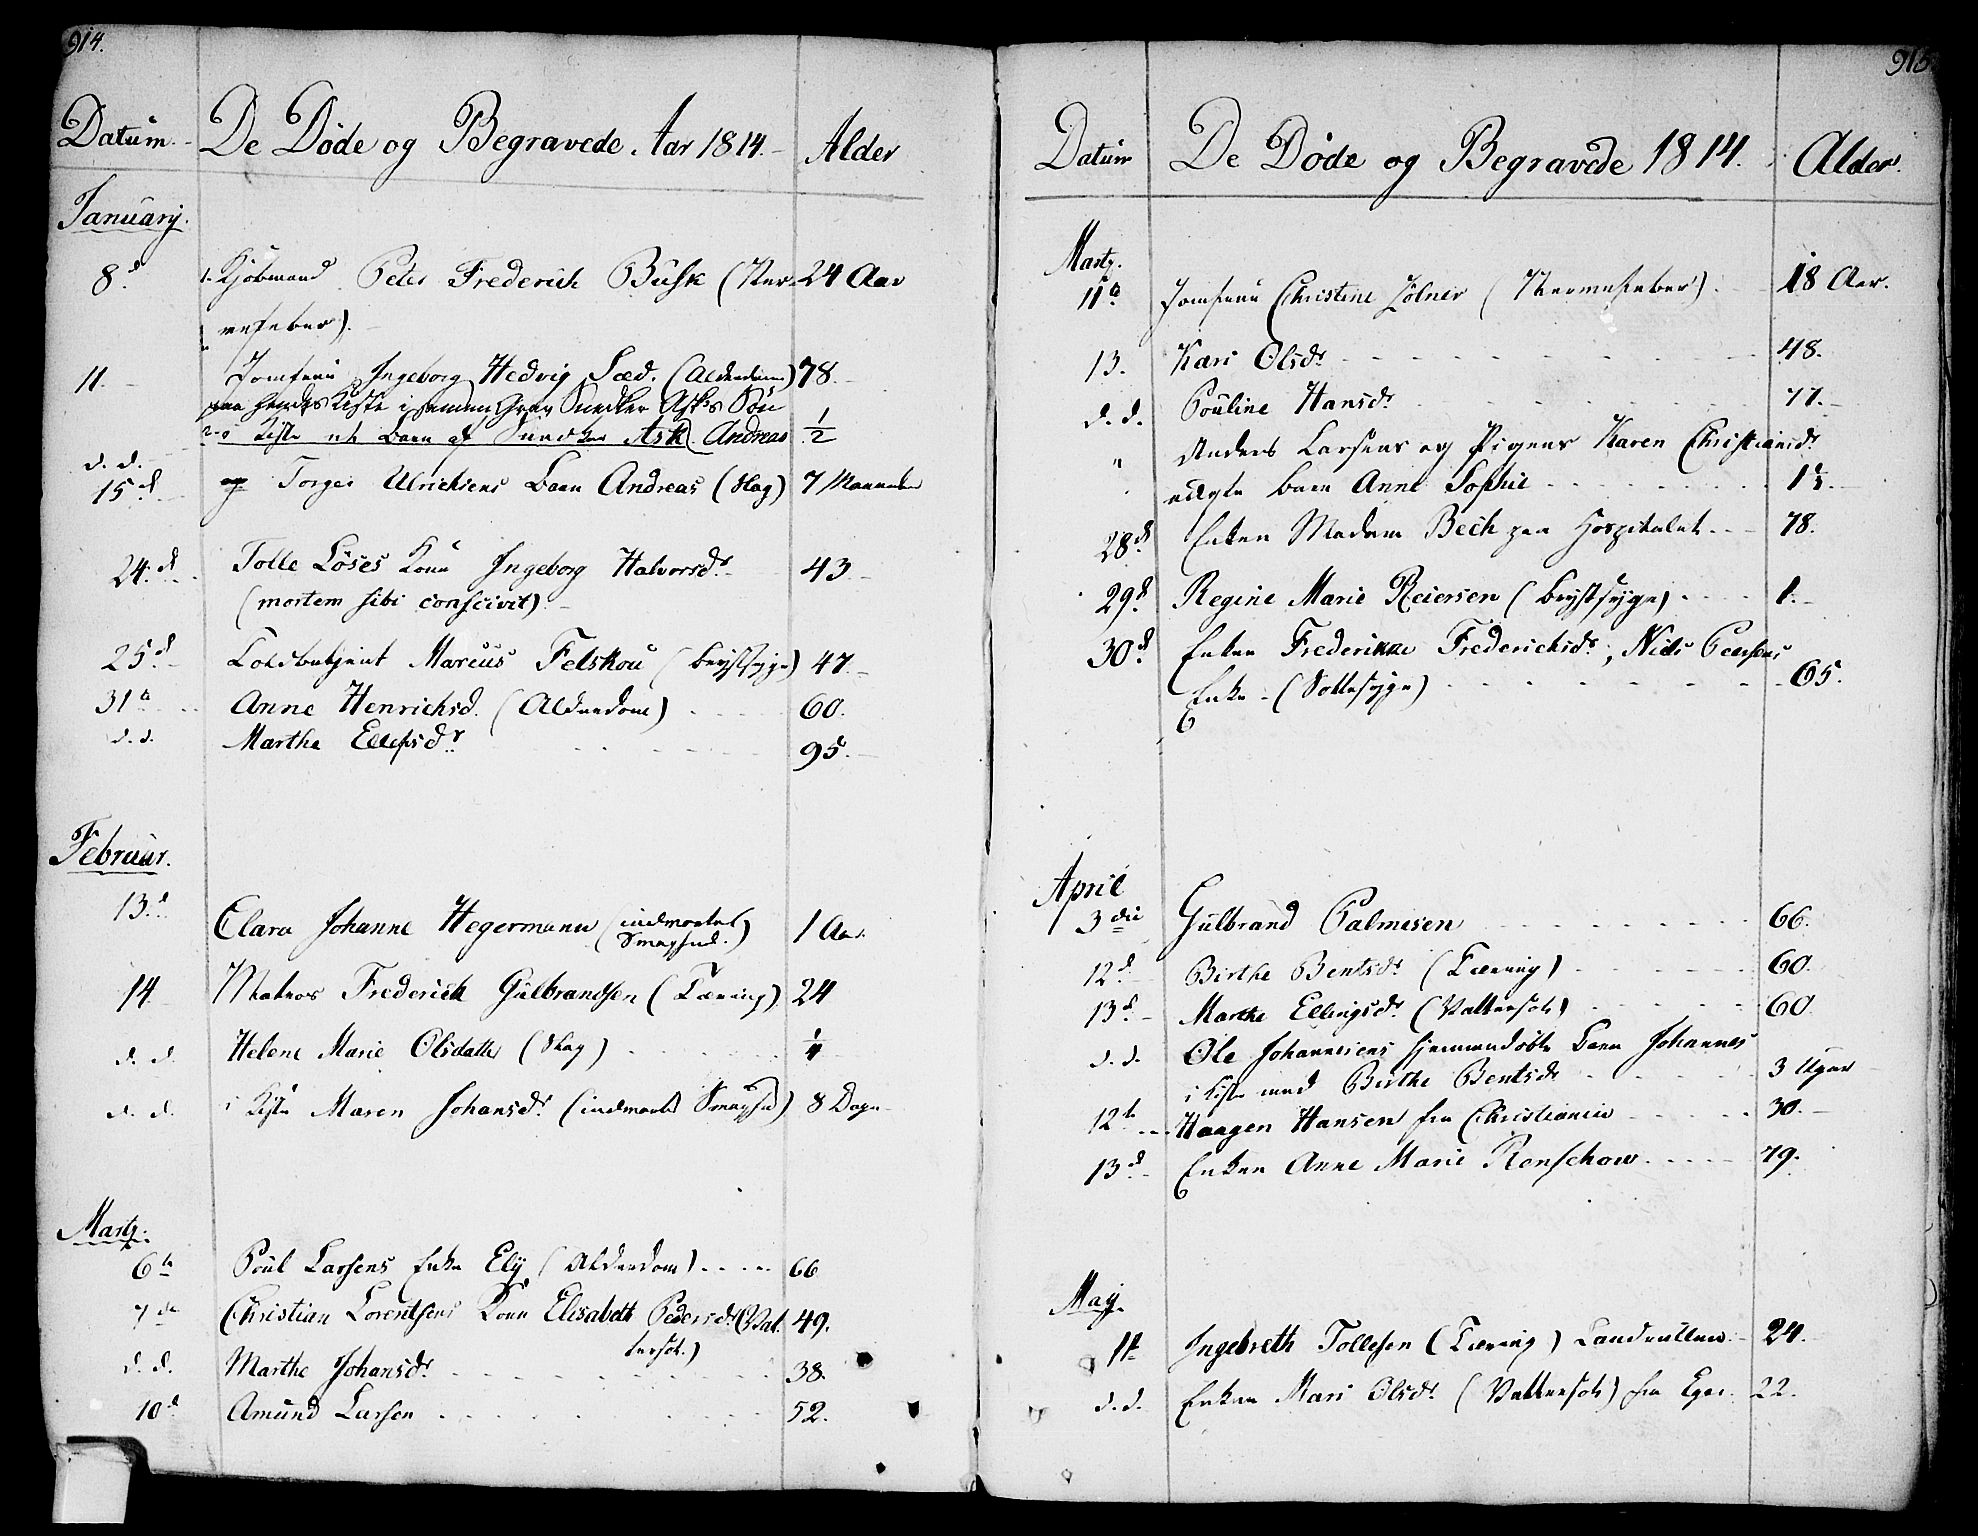 914.
Datum. De Døde og Begravede Aar 1814. Alder
Januarij.
8.d 1. Kjøbmand Peter Frederich Busk (Ner- 24 Aar
vefeber).
11. Jomfrue Ingeborg Hedvig Sæd. (Alderdom) 78.
paa hendes Kiste i samme Grav Snedker Asks Søn
Kiste et Barn af Snedker Ask Andreas 1/2
d. d.
15.d Torger Ulrichsens Barn Andreas (Slag) 7 Maaneder
24.d Tolle Løses Kone Ingeborg Halvorsdr. 43
(mortem sibi conscivit).
25.d Marcus Felskou (Brystsyge) 47.
31te Anne Henrichsd. (Alderdom) 60.
d. d. Marthe Ellefsdr 95.
Februar.
13.d Clara Johanne Hegermann (indvortes
Smapsud.) 1 Aar.
14 Matros Frederick Gulbrandsen (Tæring) 24
d. d. Helene Marie Olsdatter (Slag) 1/4
d. d. i Kiste Maren Johansdr. (indvortes Smapsd) 8 Dage
Martz.
6te Poul Larsens Enke Ely (Alderdom) 66
7de Christian Lorentsens Kone Elisabeth Pedersdr. (Vat- 49.
tersot.)
d. d. Marthe Johansdr. 38.
10d Amund Larsen 52.
915
Datum De Døde og Begravede 1814. Alder.
Martz.
11te Jomfrue Christine Zølner (Nervefeber). 18 Aar.
13. Kari Olsdr. 48.
d. d. Pouline Hansdr. 77.
" Anders Larsens og Pigens Karen Christiansdr
uægte Barn Anne Sophie 1 1/2.
28d. Enken Madam Bech paa Hospitalet 78.
29d. Regine Marie Reiersen (Brystsyge) 1.
30d. Enken Frederikke Frederichsdr., Niels Peersens
Enke (Sottesyge) 65.
April
3die Gulbrand Palmesen 66.
12d. Birthe Bentsdr. (Tæring) 60.
13d. Marthe Ellingsdr. (Vattersot) 60.
d. d. Ole Johannesens hjemmedøbte Barn Johannes
i Kiste med Birthe Bentsdr 3 Uger
12te Haagen Hansen fra Christiania 30.
13d. Enken Anne Marie Renschow 79.
May.
11te Ingebreth Tollefsen (Tæring) Landeværnet 24.
d. d. Enken Mari Olsdr. (Vattersot) fra Eger. 22.